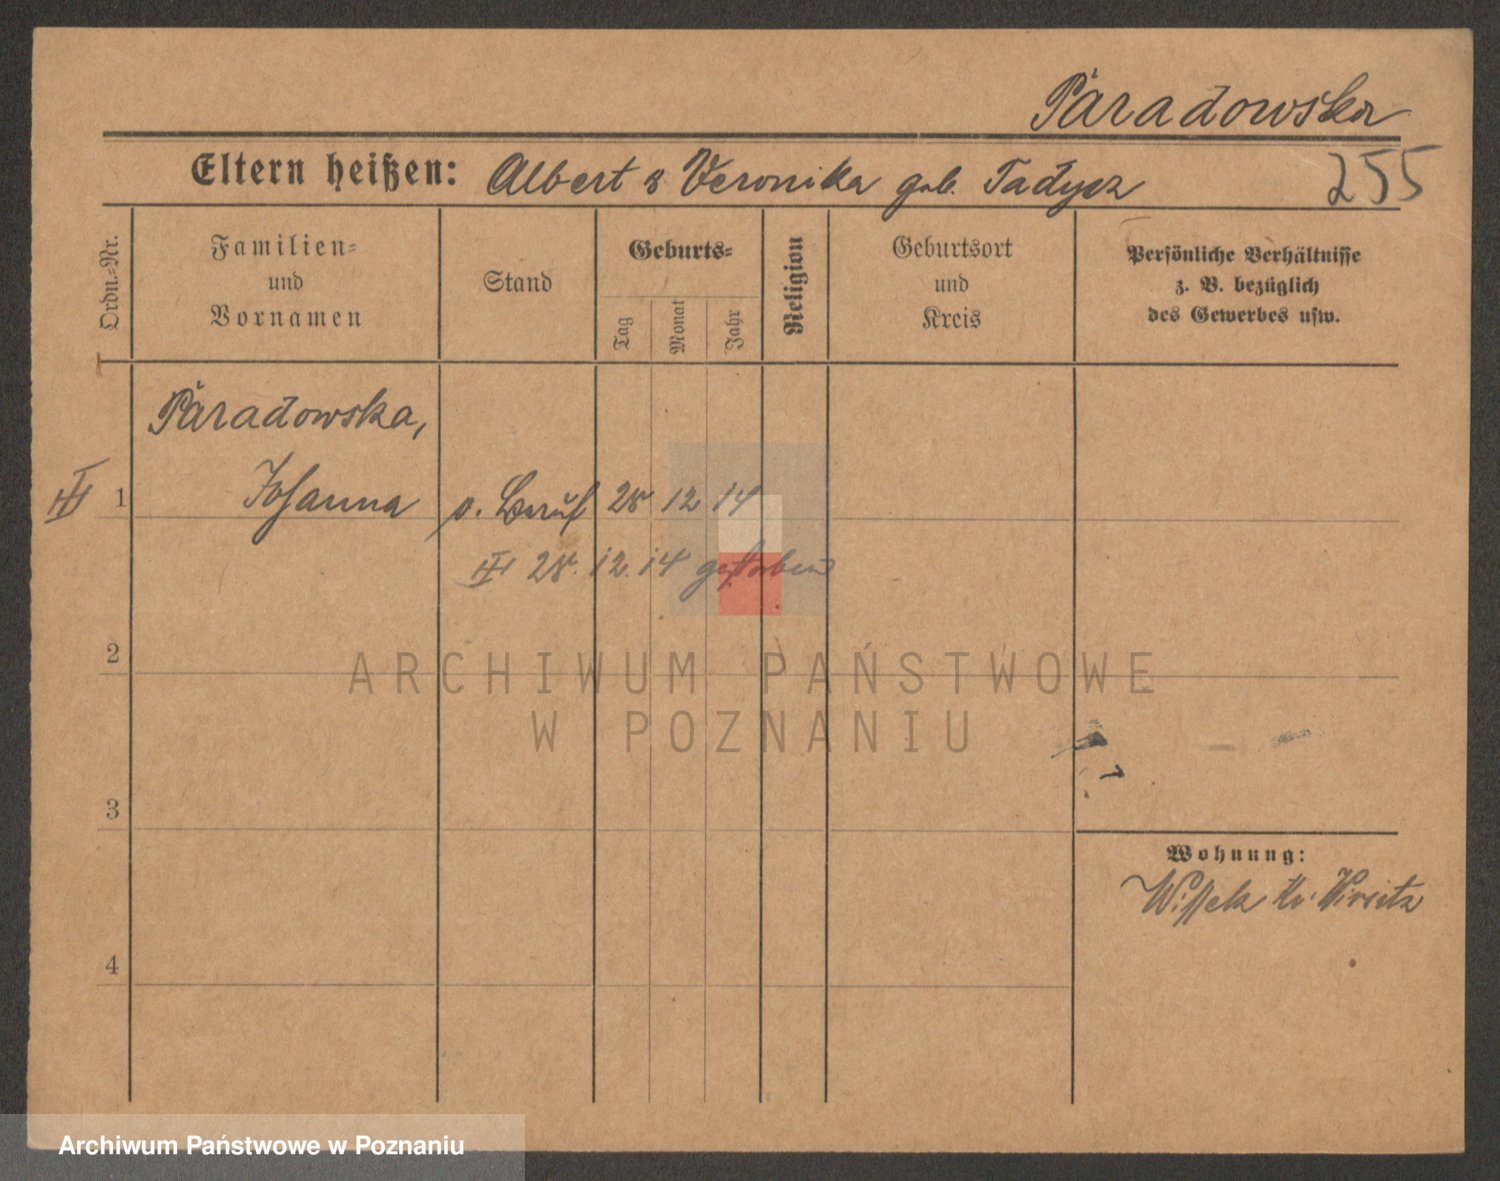 Paradowska
Eltern heißen: Albert & Veronika geb. Tadycz
255
Ordn.=Nr.
Familien=
und
Vornamen
Stand
Geburts=
Tag
Monat
Jahr
Religion
Geburtsort
und
Kreis
Persönliche Verhältnisse
z. B. bezüglich
des Gewerbes usw.
Paradowska,
1 Johanna o. Beruf 28 12 14
28. 12. 14 gestorben
2
ARCHIWUM PAŃSTWOWE
W POZNANIU
3
Wohnung:
Wissek Kr. Wirsitz
4
Archiwum Państwowe w Poznaniu